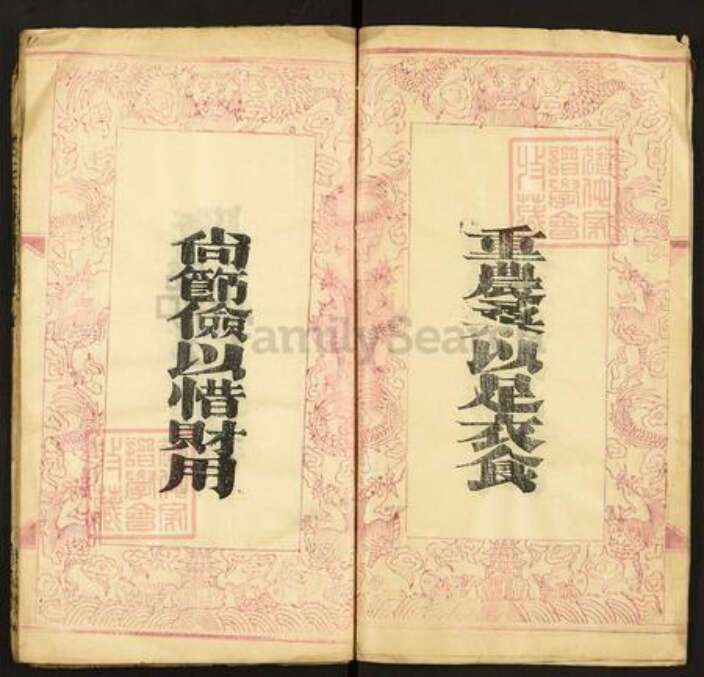 重農桑以足衣食
尚節儉以惜財用
譜學會
譜學會
FamilySearch